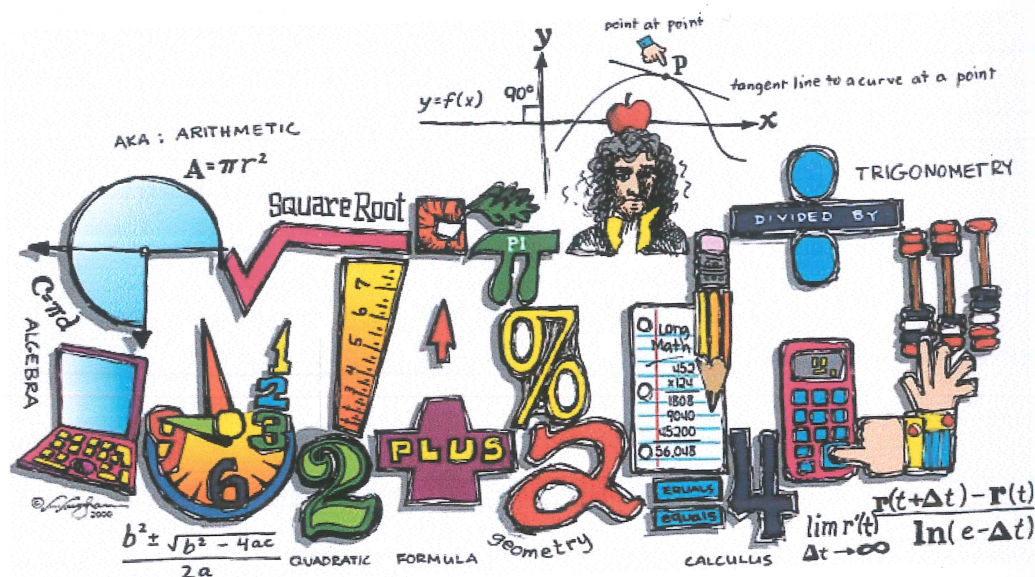 point at point
y
P
tangent line to a curve at a point
y=f(x)
90°
x
AKA: ARITHMETIC
A=πr²
TRIGONOMETRY
Square Root
DIVIDED BY
PI
C=πd
ALGEBRA
7
6
5
4
3
1
2
3
6
9
%
Long
Math
452
x124
1808
9040
45200
56,048
PLUS
2
2
4
EQUALS
equals
© 2000
b² ± √b² - 4ac
2a
QUADRATIC FORMULA
geometry
CALCULUS
lim r'(t) r(t+Δt)-r(t)
Δt→∞ ln(e-Δt)